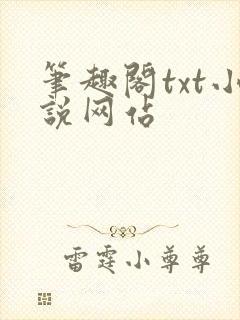 筆趣閣txt小
說网佔
雷霆小尊尊